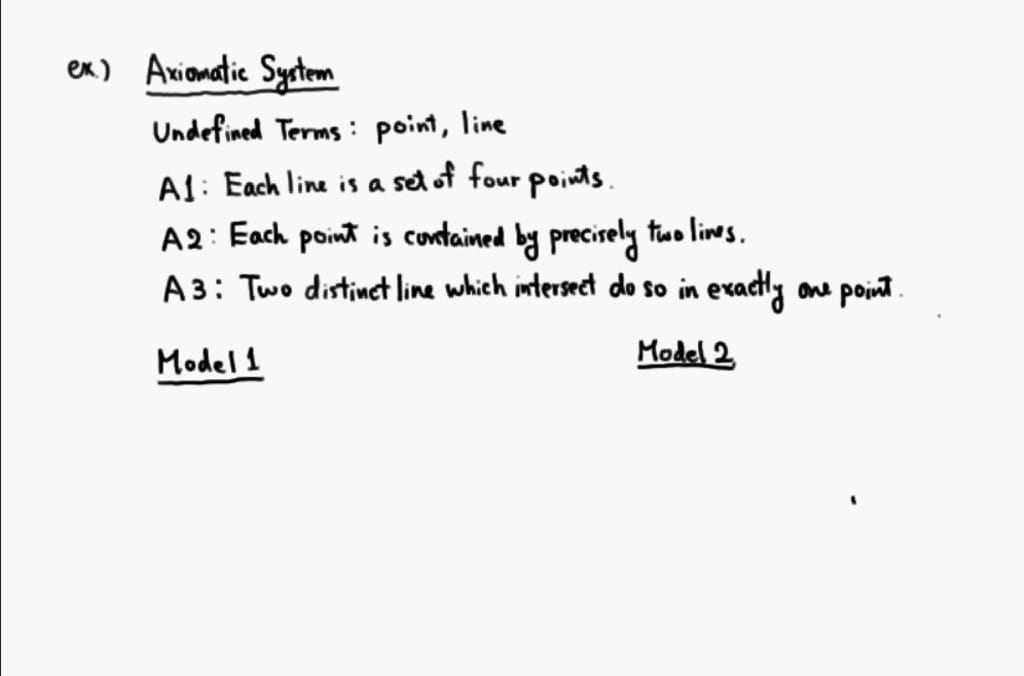 ex.) Axiomatic System
Undefined Terms: point, line
A1: Each line is a set of four points.
A2: Each point is contained by precisely two lines.
A3: Two distinct line which intersect do so in exactly one point.
Model 1 Model 2